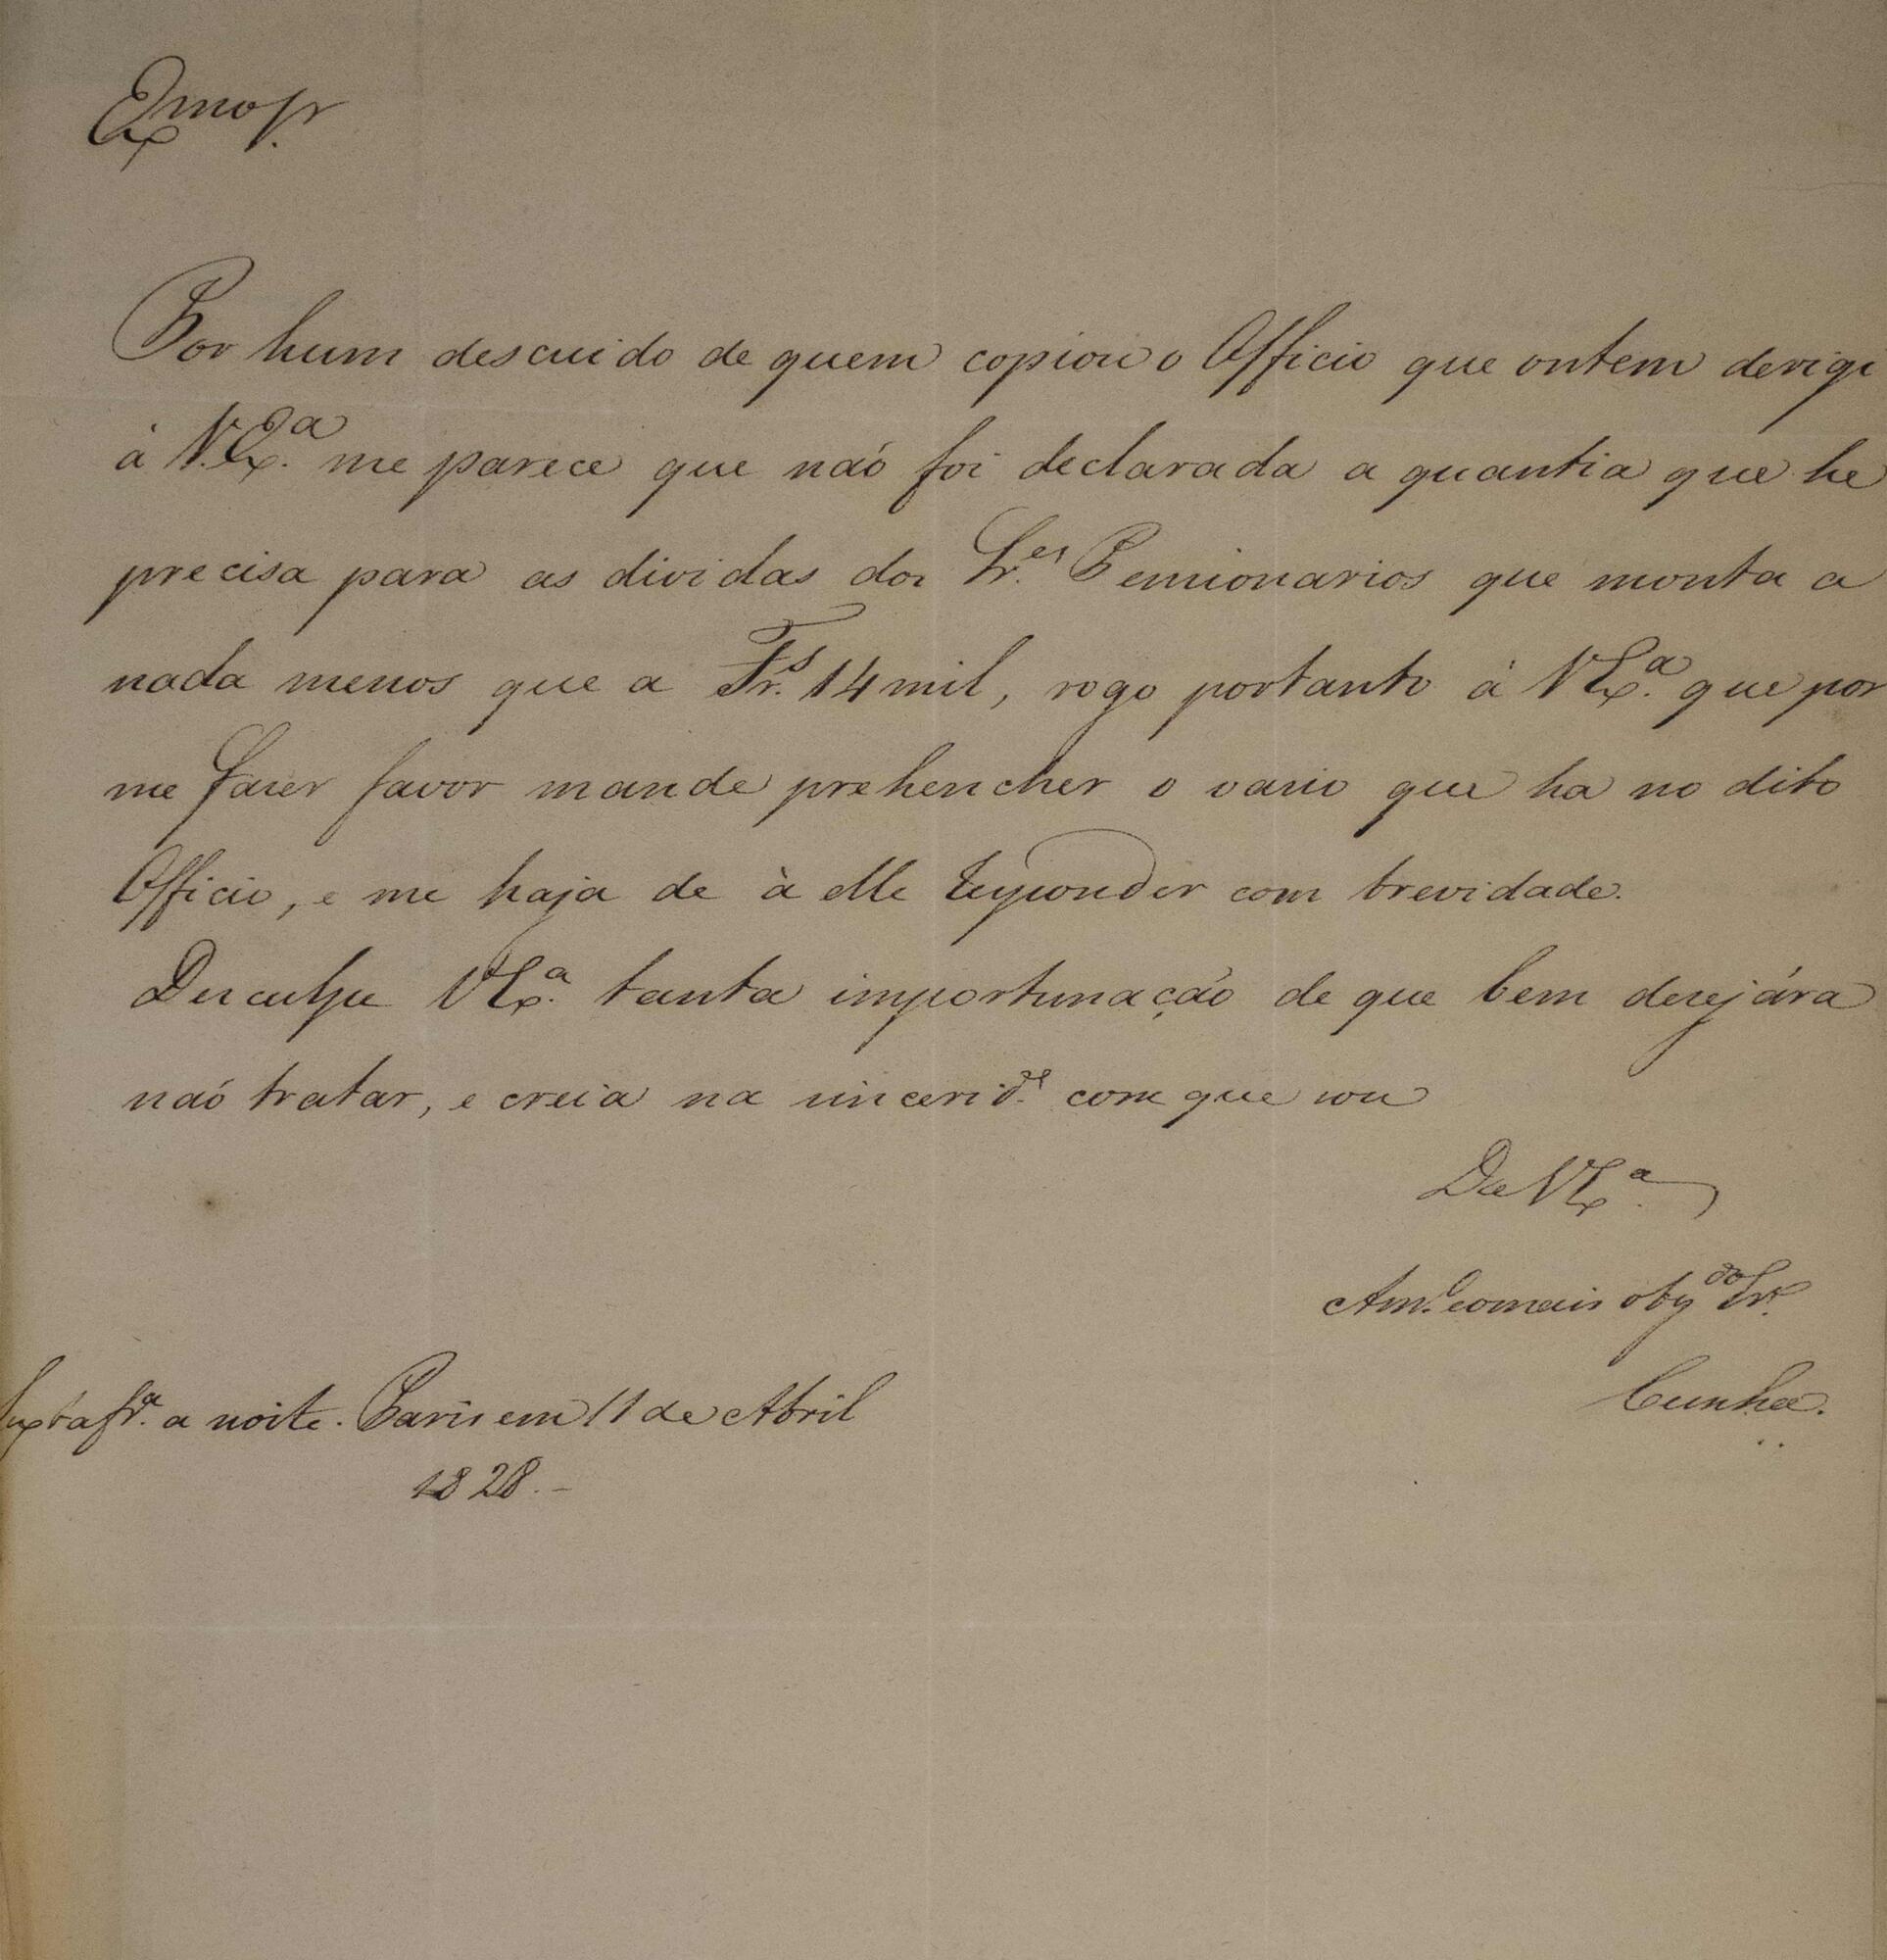 Exmo Sr.
Por hum descuido de quem copiou o Officio que ontem derigi
à V. Ex.ª me parece que naõ foi declarada a quantia que he
precisa para as dividas dos Sr.es Pensionarios que monta a
nada menos que a Fr.s 14 mil, rogo portanto à V Ex.ª que por
me fazer favor mande prehencher o vasio que ha no dito
Officio, e me haja de à elle responder com brevidade.
Desculpe V Ex.ª tanta importunação de que bem desejára
naõ tratar, e creia na sincerid.e com que sou
De V Ex.ª
Am.º e o mais obg.do Sr.
Cunha.
Sexta fr.ª a noite. Paris em 11 de Abril
1828. -